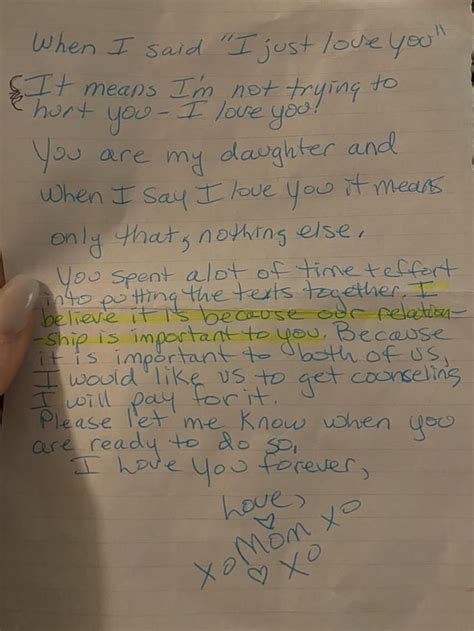 When I said "I just love you"
It means I'm not trying to
hurt you - I love you!
You are my daughter and
when I say I love you it means
only that, nothing else.
You spent alot of time + effort
into putting the texts together. I
believe it is because our relation-
-ship is important to you. Because
it is important to both of us,
I would like us to get counseling
I will pay for it.
Please let me know when you
are ready to do so,
I love you forever,
Love,
Mom xo
xo xo